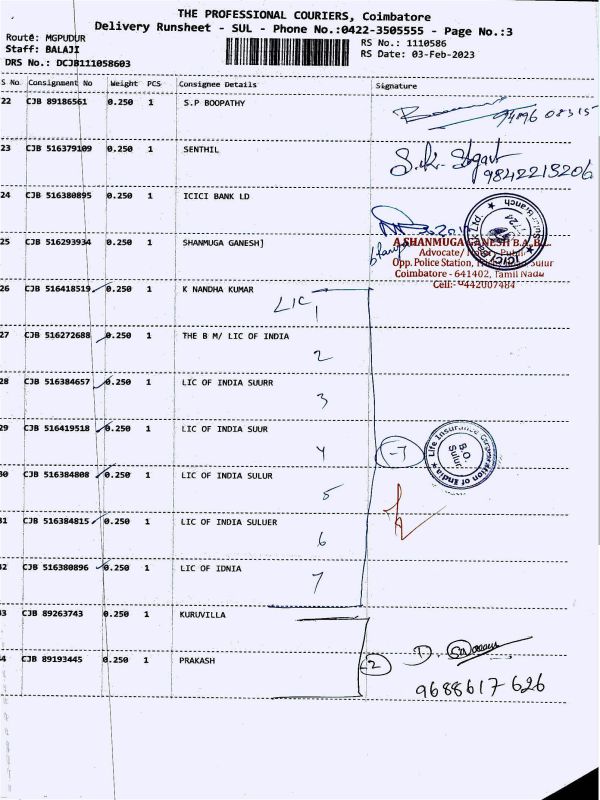 THE PROFESSIONAL COURIERS, Coimbatore
Delivery Runsheet - SUL - Phone No.:0422-3505555 - Page No.:3
Route: MGPUDUR
Staff: BALAJI
DRS No.: DCJB111058603
RS No.: 1110586
RS Date: 03-Feb-2023
S No. Consignment No Weight PCS Consignee Details Signature
22 CJB 89186561 0.250 1 S.P BOOPATHY
94896 08315
23 CJB 516379109 0.250 1 SENTHIL
9842213206
24 CJB 516380895 0.250 1 ICICI BANK LD
25 CJB 516293934 0.250 1 SHANMUGA GANESH]
A.SHANMUGA GANESH B.A.,B.L.
Advocate/
Opp. Police Station, Sulur
Coimbatore - 641402, Tamil Nadu
Cell:- 9442007484
ICICI Bank Ltd. Sulur Branch
26 CJB 516418519 0.250 1 K NANDHA KUMAR
LIC 1
27 CJB 516272688 0.250 1 THE B M/ LIC OF INDIA
2
28 CJB 516384657 0.250 1 LIC OF INDIA SUURR
3
29 CJB 516419518 0.250 1 LIC OF INDIA SUUR
4
-7
Life Insurance Corporation of India
B.O.
Sulur
30 CJB 516384808 0.250 1 LIC OF INDIA SULUR
5
31 CJB 516384815 0.250 1 LIC OF INDIA SULUER
6
32 CJB 516380896 0.250 1 LIC OF IDNIA
7
33 CJB 89263743 0.250 1 KURUVILLA
34 CJB 89193445 0.250 1 PRAKASH
-2
9688617626